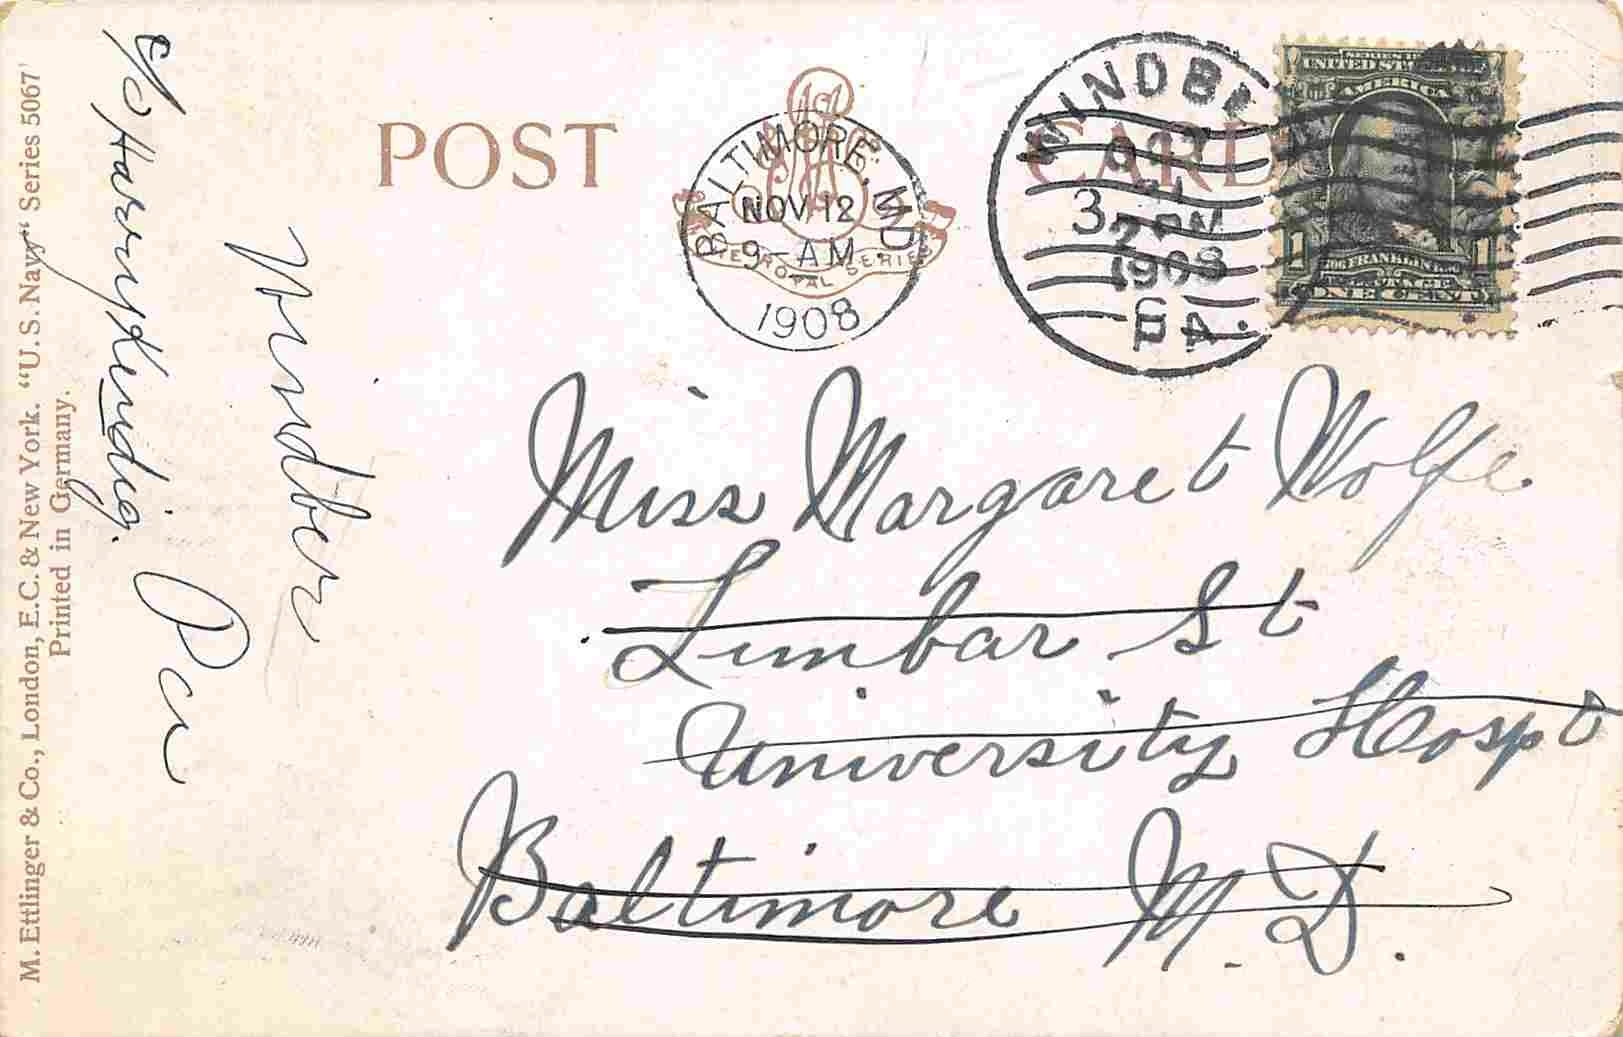 POST CARD
BALTIMORE, MD.
NOV 12
9-AM
1908
SERIES
WINDB
3 PM
1908
PA.
UNITED STATES
AMERICA
FRANKLIN
POSTAGE
1 1
ONE CENT
Miss Margaret Wolfe
Limbar St
University Hospt
Baltimore M.D.
c/o Harry Kindig.
Windber
Pa
M. Ettlinger & Co., London, E.C. & New York. "U.S. Navy" Series 5067'
Printed in Germany.